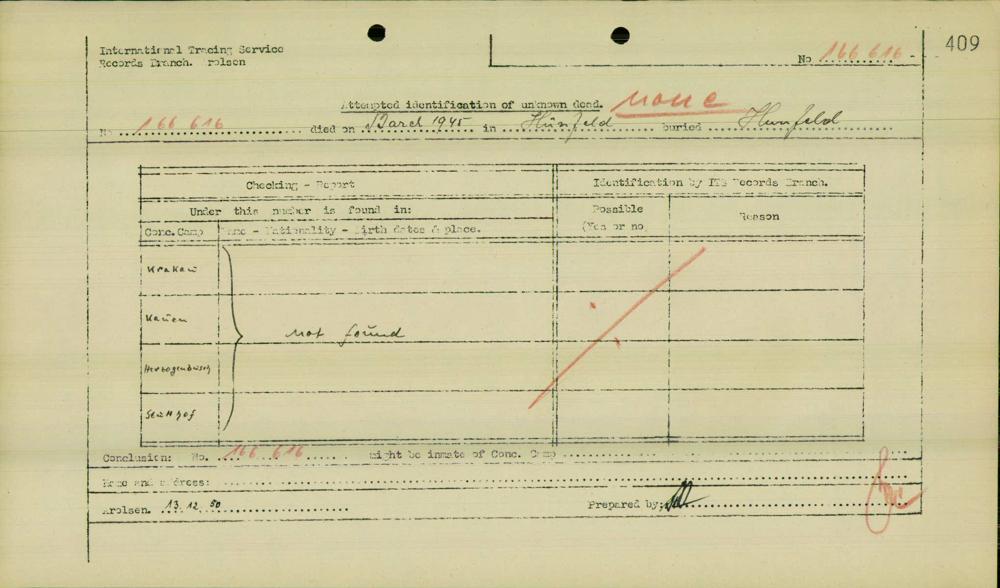 409
International Tracing Service
Records Branch. rolsen
No 166 616
Attempted identification of unknown dead. none
No 166 616 died on March 1945 in Hünfeld buried Hünfeld
Checking - Report Identification by ITS Records Branch.
Under this number is found in: Possible Reason
Conc. Camp Name - Nationality - Birth dates & place. (Yes or no)
Krakau
Kauen
not found
Herzogenbusch
Stutthof
Conclusion: No. 166 616 might be inmate of Conc. Camp
Name and address:
Arolsen. 13.12.50 Prepared by: